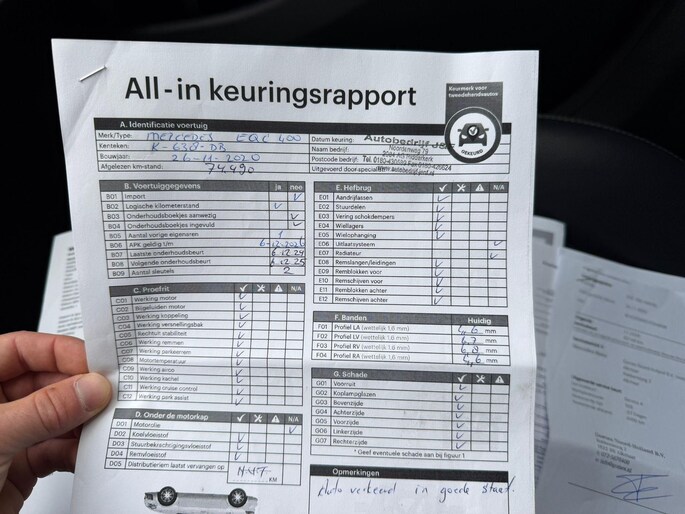 All-in keuringsrapport
Keurmerk voor
tweedehandsautos
GEKEURD
A. Identificatie voertuig
Merk/Type: Mercedes EQC 400
Kenteken: K-638-DB
Bouwjaar: 26-11-2020
Afgelezen km-stand: 74490
Datum keuring:
Naam bedrijf:
Postcode bedrijf:
Uitgevoerd door specialist:
Autobedrijf
Noordenweg 79
B. Voertuiggegevens ja nee
B01 Import
B02 Logische kilometerstand
B03 Onderhoudsboekjes aanwezig
B04 Onderhoudsboekjes ingevuld
B05 Aantal vorige eigenaren 1
B06 APK geldig t/m 6-12-2026
B07 Laatste onderhoudsbeurt 6.12.24
B08 Volgende onderhoudsbeurt 6.12.25
B09 Aantal sleutels 2
C. Proefrit N/A
C01 Werking motor
C02 Bijgeluiden motor
C03 Werking koppeling
C04 Werking versnellingsbak
C05 Rechtuit stabiliteit
C06 Werking remmen
C07 Werking parkeerrem
C08 Motortemperatuur
C09 Werking airco
C10 Werking kachel
C11 Werking cruise control
C12 Werking park assist
D. Onder de motorkap N/A
D01 Motorolie
D02 Koelvloeistof
D03 Stuurbekrachtigingsvloeistof
D04 Remvloeistof
D05 Distributieriem laatst vervangen op KM
E. Hefbrug N/A
E01 Aandrijfassen
E02 Stuurdelen
E03 Vering schokdempers
E04 Wiellagers
E05 Wielophanging
E06 Uitlaatsysteem
E07 Radiateur
E08 Remslangen/leidingen
E09 Remblokken voor
E10 Remschijven voor
E11 Remblokken achter
E12 Remschijven achter
F. Banden Huidig
F01 Profiel LA (wettelijk 1,6 mm) 4,6 mm
F02 Profiel LV (wettelijk 1,6 mm) 6,7 mm
F03 Profiel RV (wettelijk 1,6 mm) 6,8 mm
F04 Profiel RA (wettelijk 1,6 mm) 4,6 mm
G. Schade
G01 Voorruit
G02 Koplampglazen
G03 Bovenzijde
G04 Achterzijde
G05 Voorzijde
G06 Linkerzijde
G07 Rechterzijde
* Geef eventuele schade aan bij figuur 1
Opmerkingen
Auto verkeerd in goede staat.